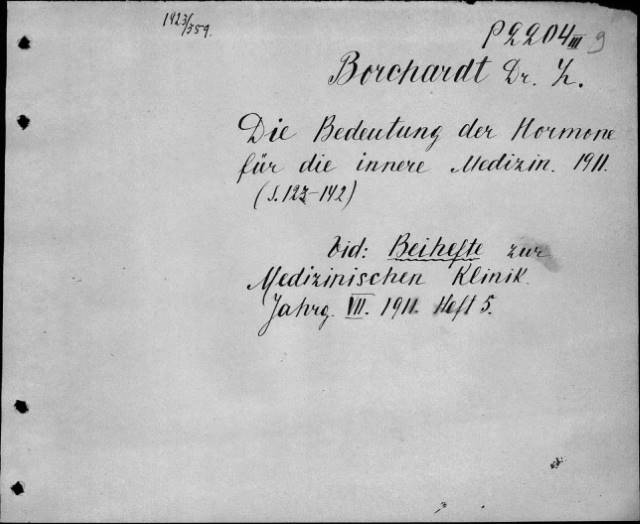 1923/359.
P2204 III 9
Borchardt Dr. L.
Die Bedeutung der Hormone
für die innere Medizin. 1911.
(S. 123-142)
Vid: Beihefte zur
Medizinischen Klinik.
Jahrg. VII. 1911. Heft 5.